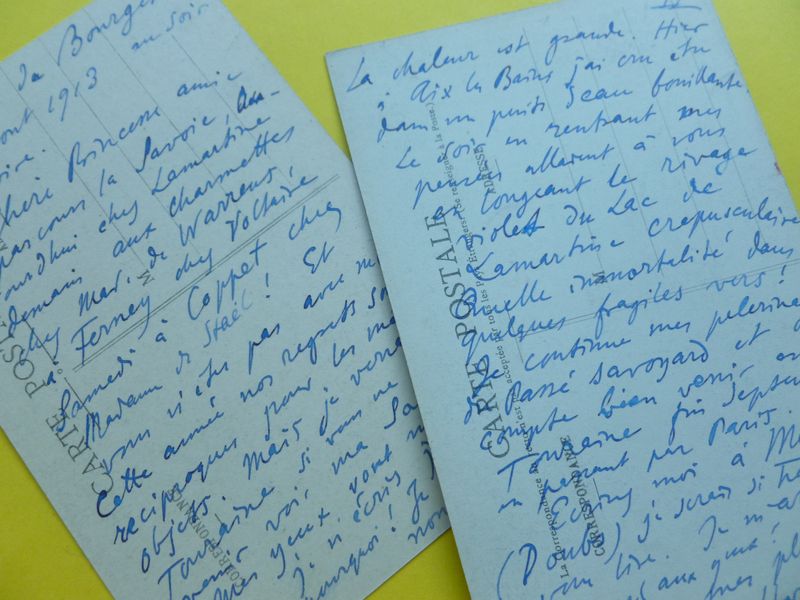 du Bourget
août 1913 au soir
chère Princesse amie
parcours la Savoie, Au-
jourd'hui chez Lamartine
demain aux charmettes
chez Mad. de Warrens
à Ferney chez Voltaire
Samedi à Coppet chez
Madame de Staël! Et
vous n'êtes pas avec m
Cette année nos regrets so
réciproques pour les m
objets. Mais je verra
Touraine si vous ne
venir voir ma Sa
Mes yeux vont m
Je n'écris
Pourquoi! J
non
CARTE POSTALE
CORRESPONDANCE
II
La chaleur est grande. Hier
à Aix les Bains j'ai cru être
dans un puits d'eau bouillante.
Le soir en rentrant mes
pensées allaient à vous
en longeant le rivage
violet du Lac de
Lamartine crepusculaire
quelle immortalité dans
quelques fragiles vers!
Je continue mes pelerina
de Passé Savoyard et
compte bien venir en
Touraine fin Septem
en passant par Paris.
Ecrivez moi à M
(Doubs) je serais si
vous lire. Je m'a
aux
mes pl
CARTE POSTALE
La Correspondance au recto n'est pas acceptée par tous les Pays Étrangers (Se renseigner à la Poste)
CORRESPONDANCE
ADRESSE